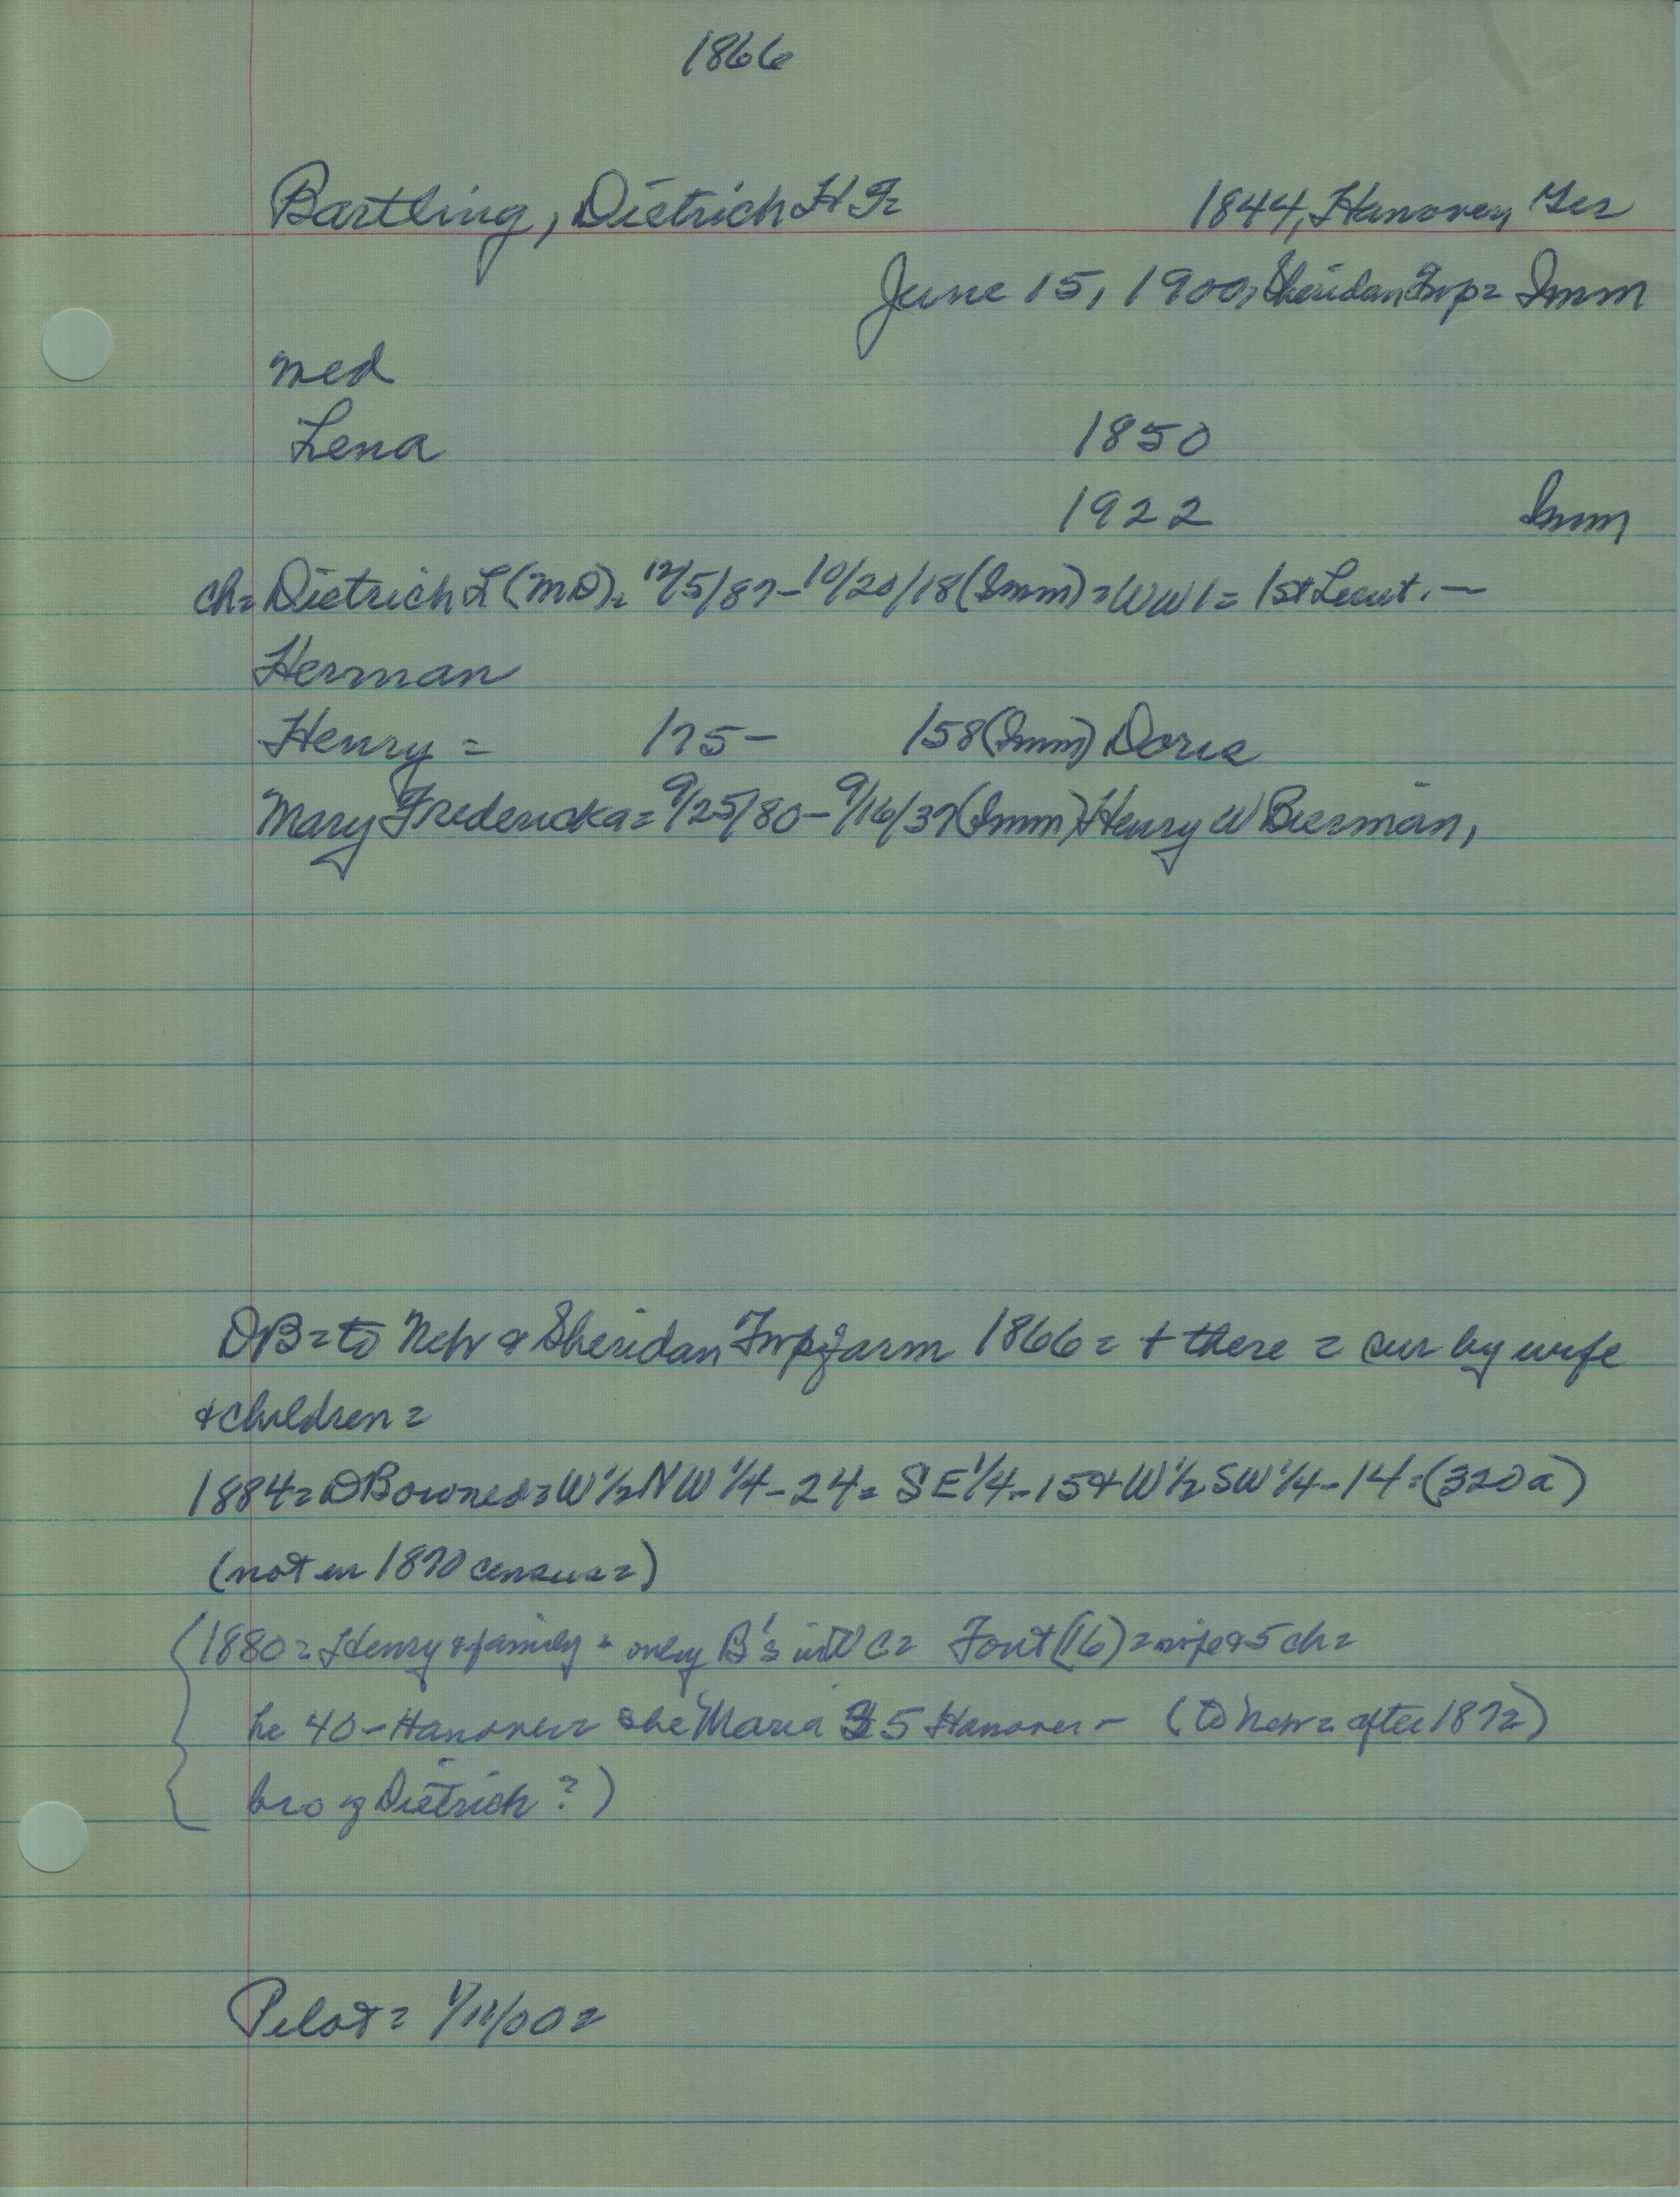 1866
Bartling, Dietrich H F= 1844, Hanover, Ger
June 15, 1900, Sheridan Twp= Imm
med
Lena 1850
1922 Imm
ch= Dietrich L (MD)= 12/5/87-10/20/18 (Imm)= WW1= 1st Lieut. -
Herman
Henry = 175- 158 (Imm) Doris
Mary Fredericka= 9/25/80-9/16/37 (Imm) Henry W Bierman,
DB= to Neb & Sheridan Twp farm 1866= + there = sur by wife
& children=
1884= DB owned= W 1/2 NW 1/4-24= SE 1/4-15+ W 1/2 SW 1/4-14= (320a)
(not in 1870 census=)
1880= Henry & family = only B's in WC= Font (16)= wife & 5 ch=
he 40-Hanover= she Maria 35 Hanover- (to Neb= after 1872)
bro of Dietrich?)
Pilot= 1/11/00=